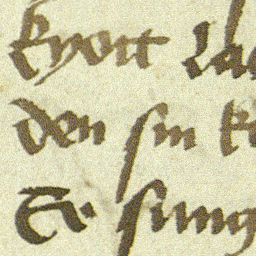 kyott la
den sin k
Er sung